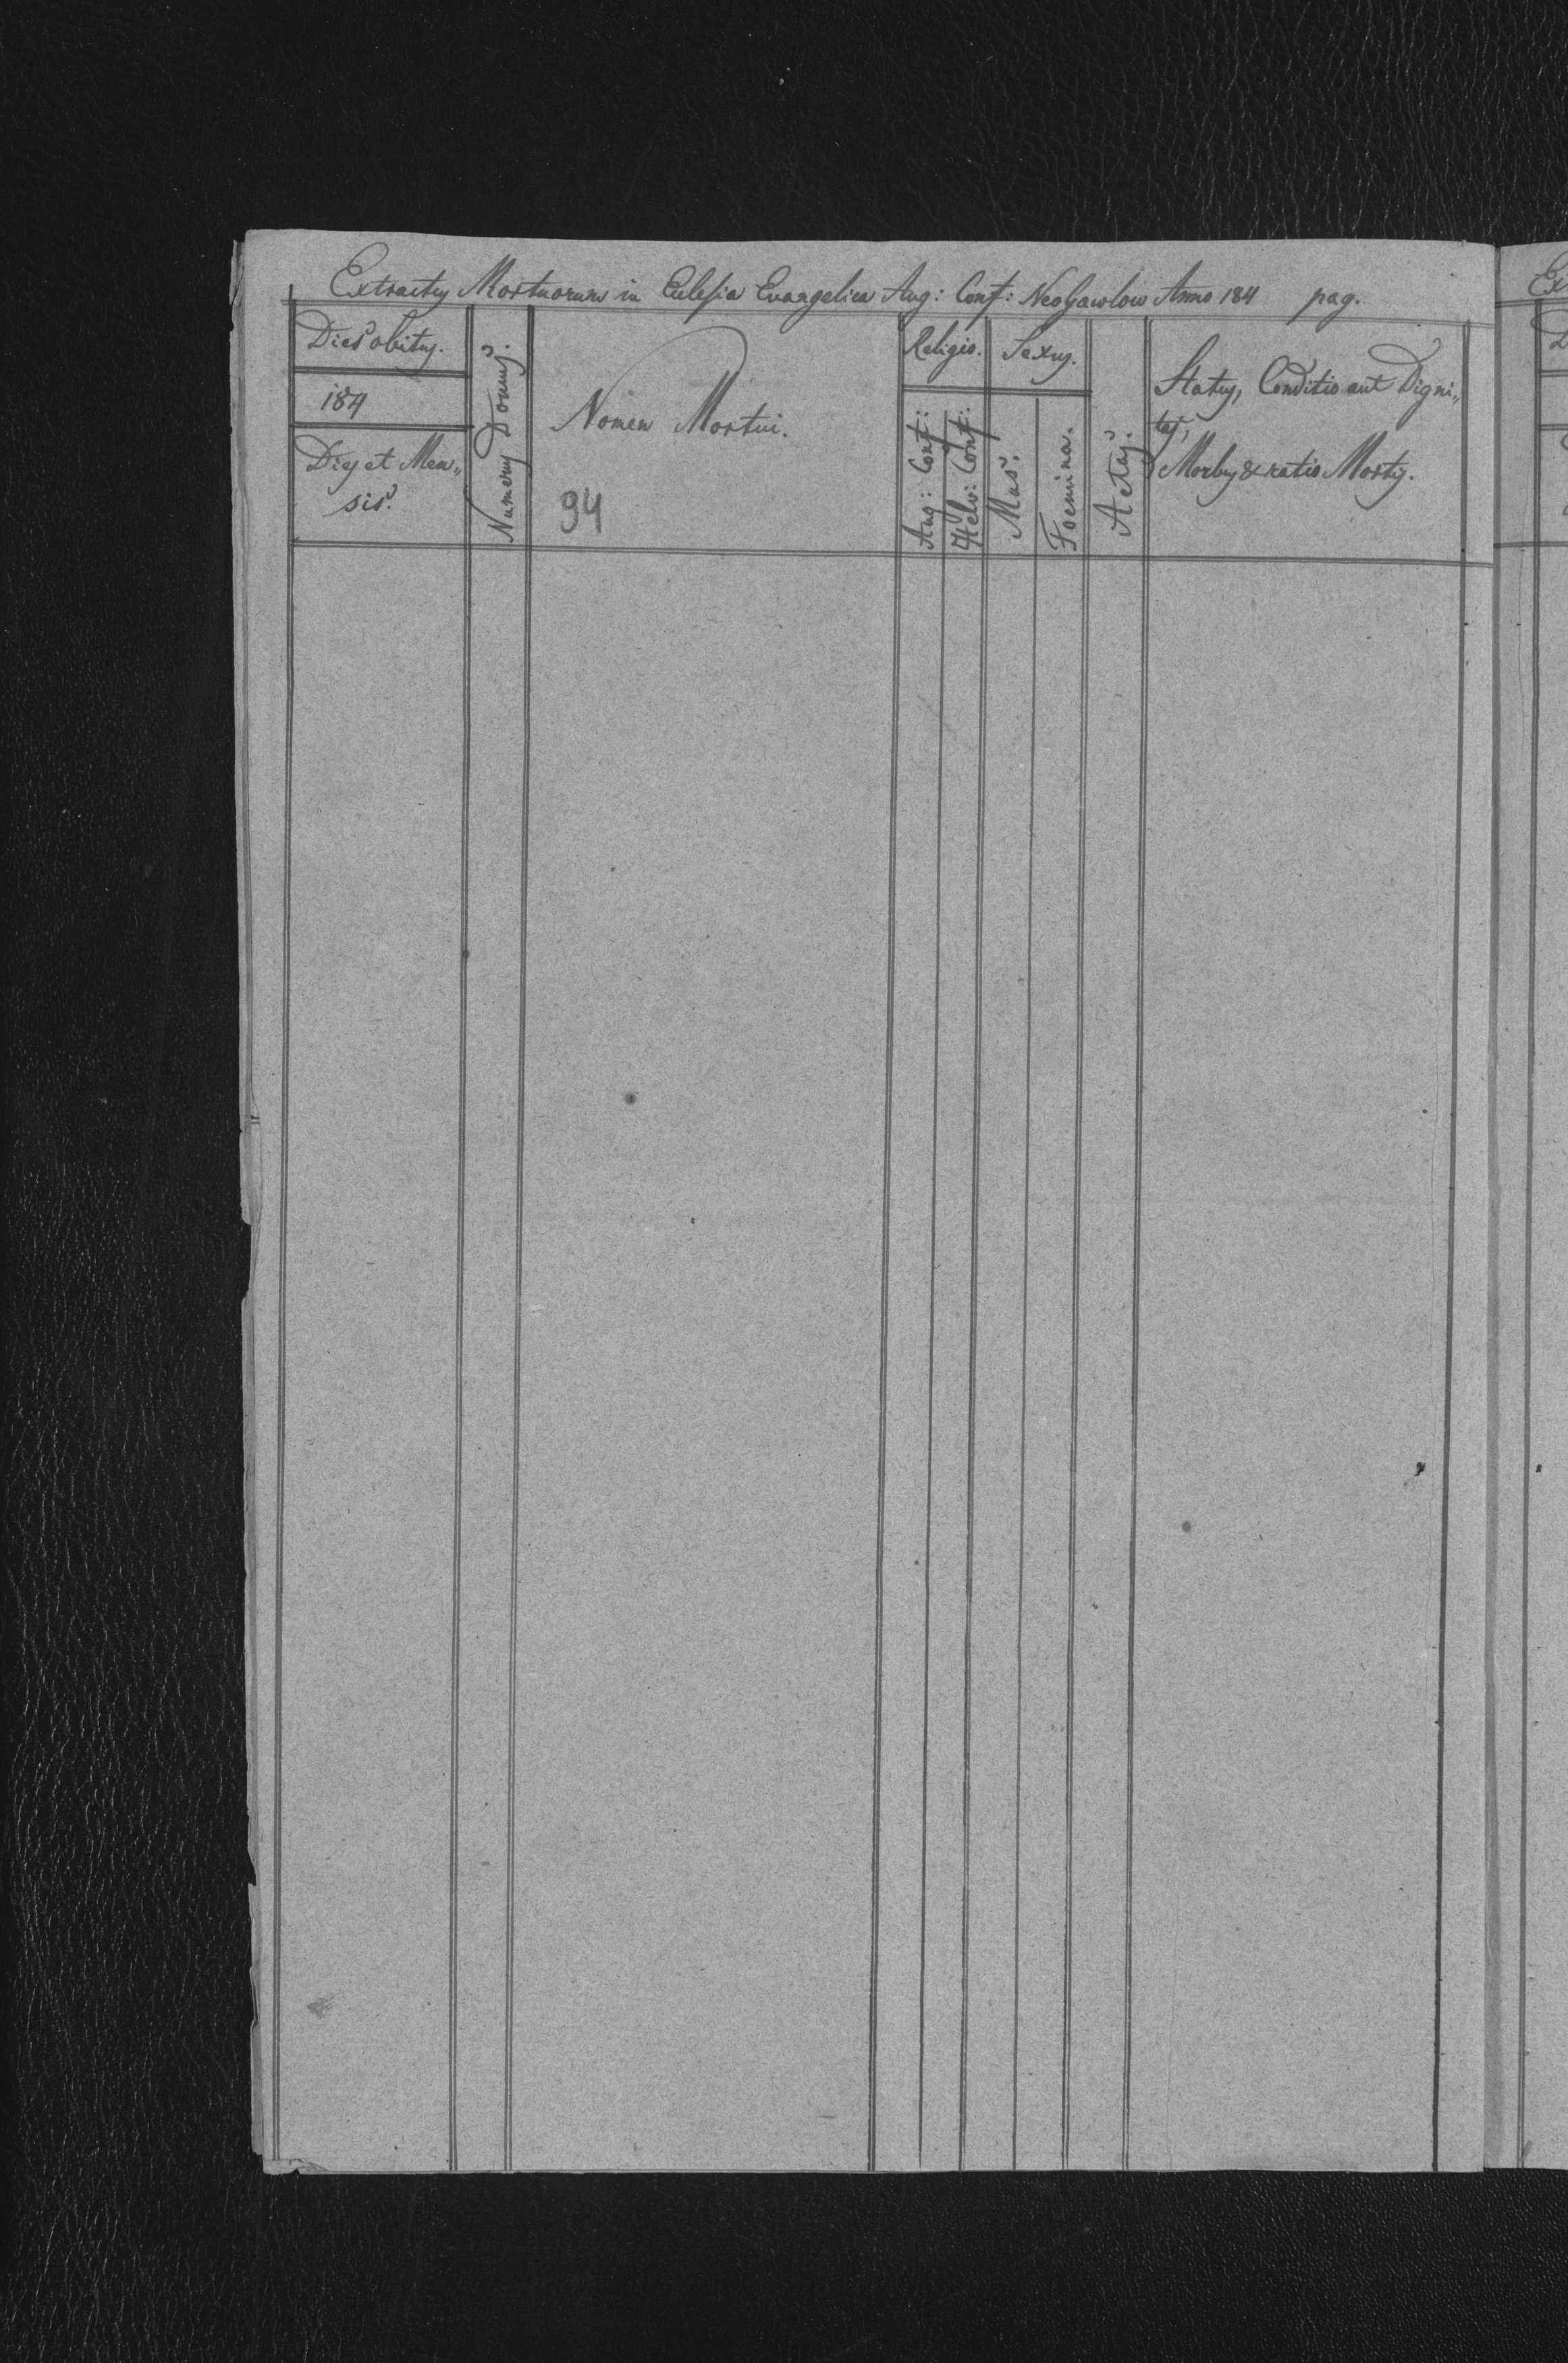 Extractus Mortuorum in Eclesia Evangelica Aug: Conf: NeoGawlow Anno 184 pag.
Dies obitus.
184
Dies et Men„
sis.
Numerus Domus.
Nomen Mortui.
94
Religio.
Aug: Conf:
Helv: Conf:
Sexus.
Mas.
Foemina.
Aetas.
Status, Conditio aut Digni„
tas,
Morbus & ratio Mortis.